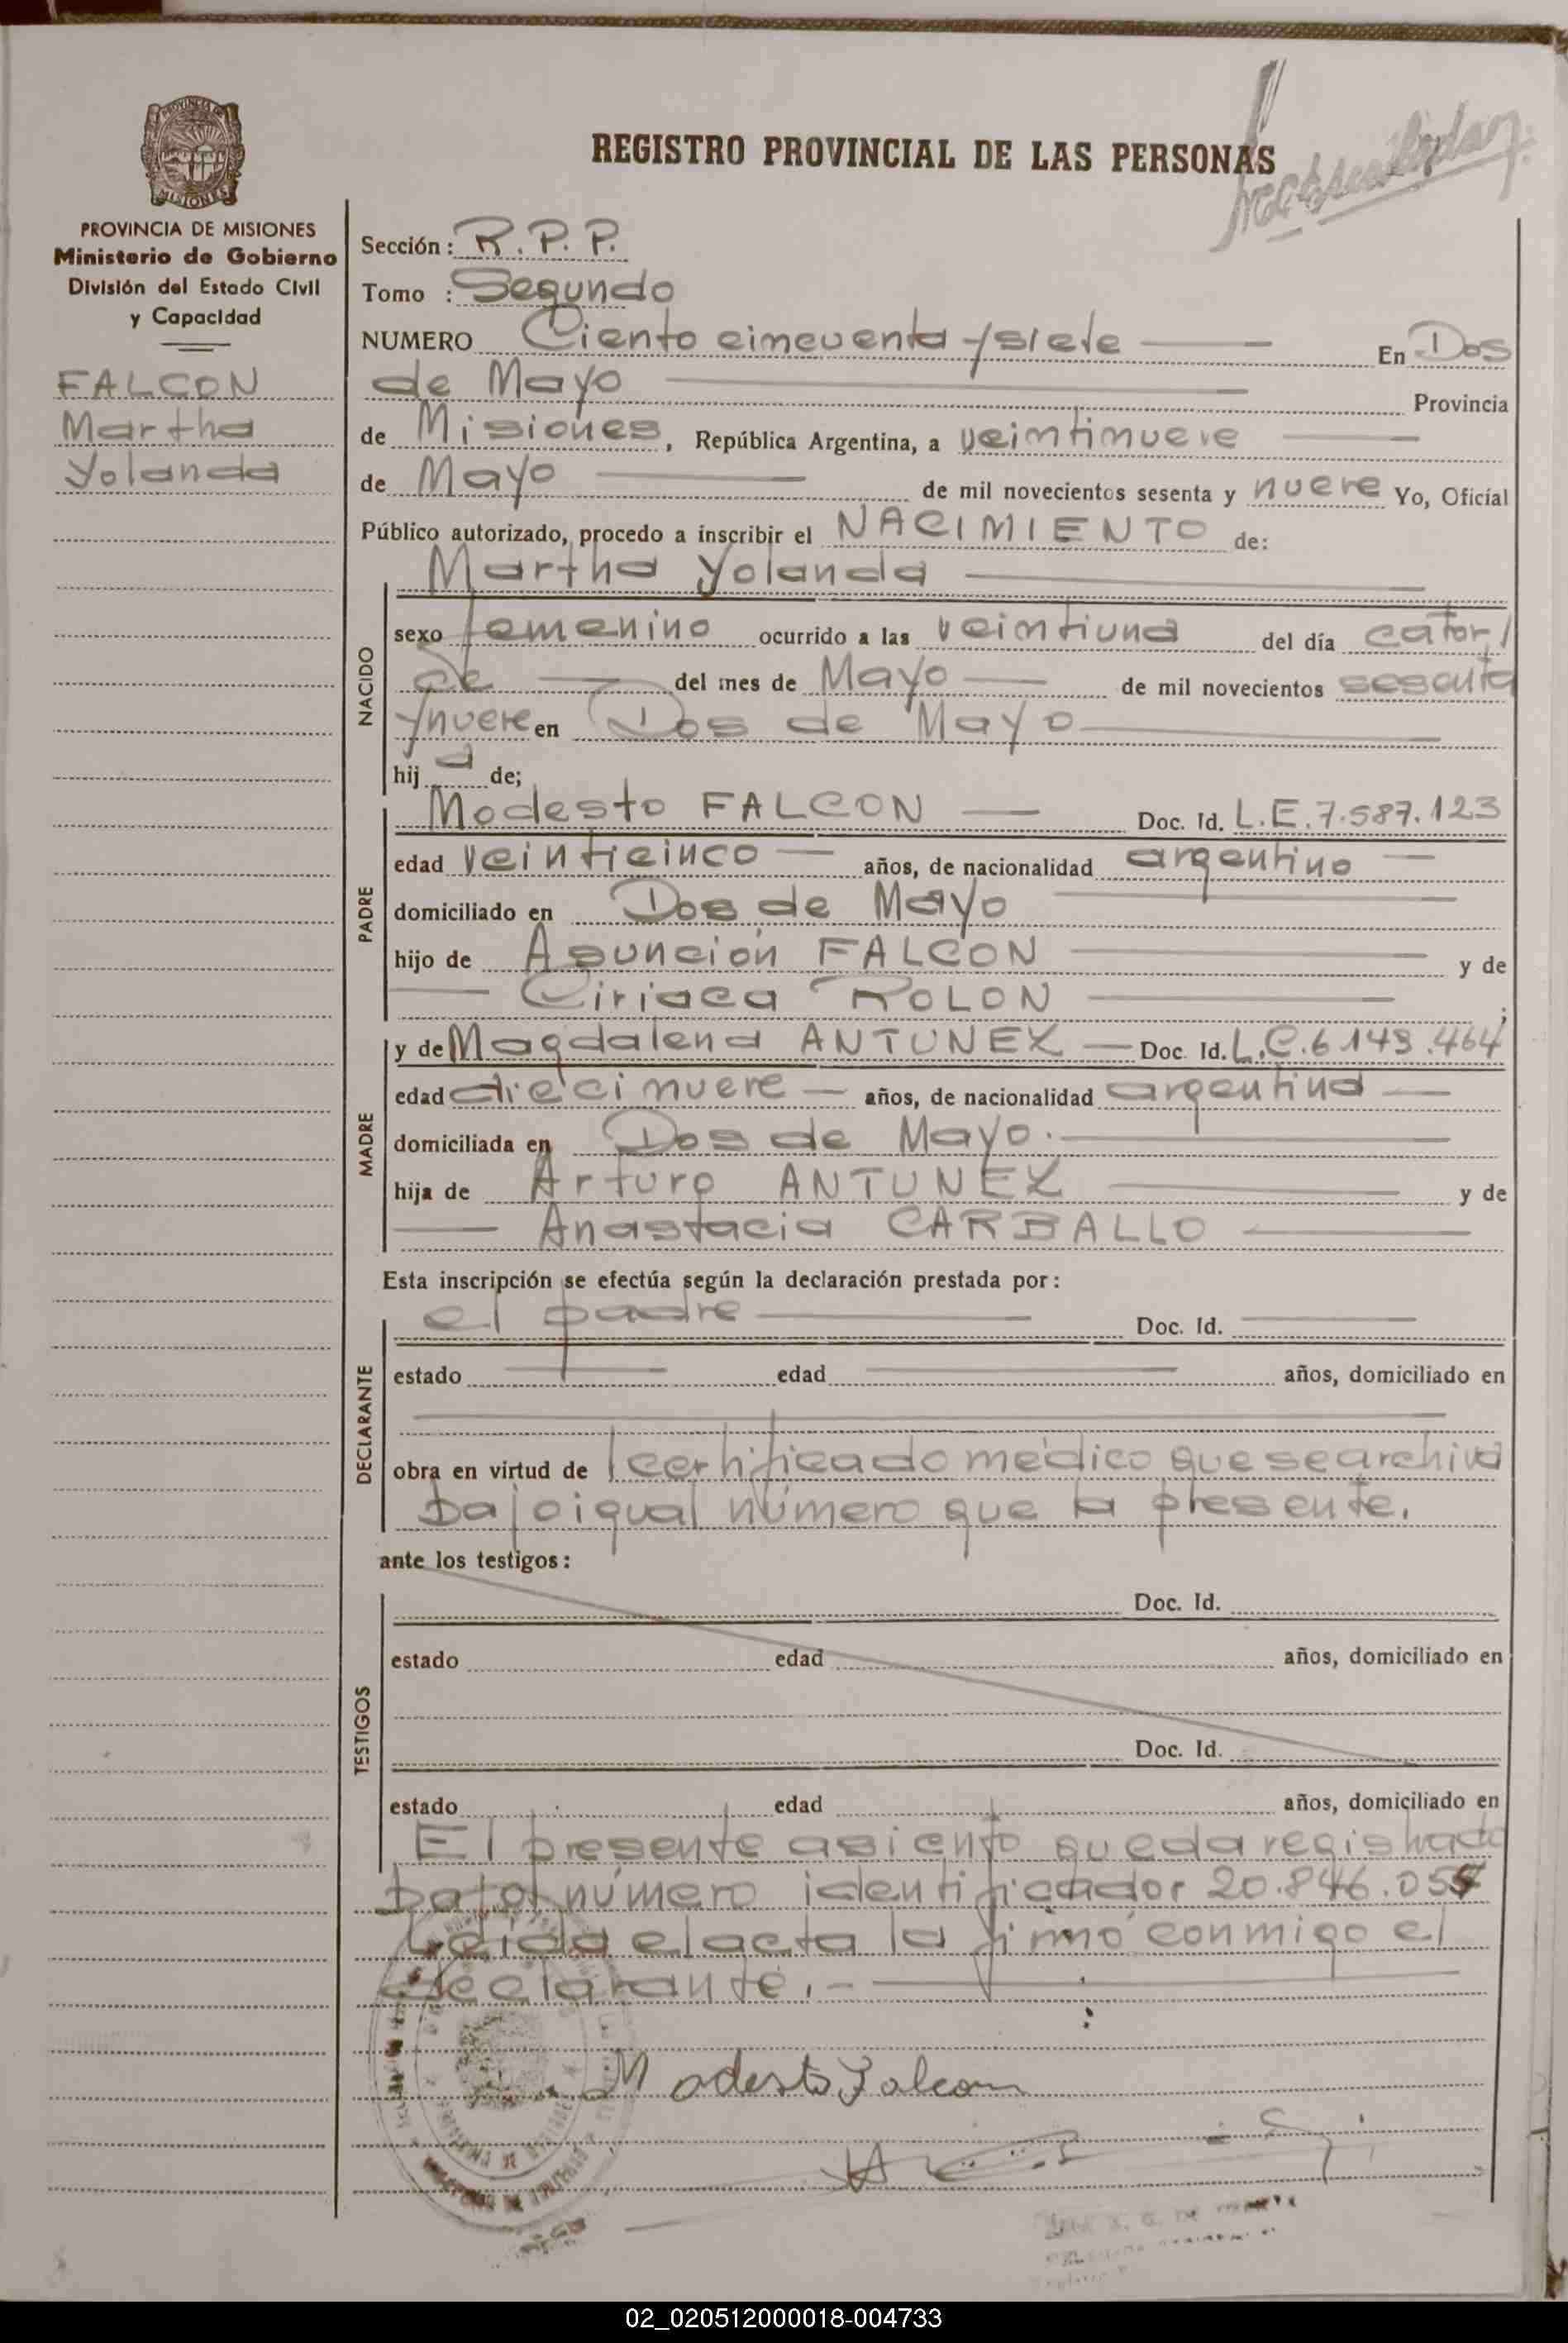 REGISTRO PROVINCIAL DE LAS PERSONAS
PROVINCIA DE MISIONES
Ministerio de Gobierno
División del Estado Civil
y Capacidad
FALCON
Martha
Yolanda
Sección : R. P. P.
Tomo : Segundo
NUMERO Ciento cincuenta y siete En Dos
de Mayo Provincia
de Misiones, República Argentina, a veintinueve
de Mayo de mil novecientos sesenta y nueve Yo, Oficial
Público autorizado, procedo a inscribir el NACIMIENTO de:
Martha Yolanda
NACIDO
sexo femenino ocurrido a las veintiuna del día cator/
ce del mes de Mayo de mil novecientos sesenta
y nueve en Dos de Mayo
hij a de;
PADRE
Modesto FALCON Doc. Id. L.E. 7.587.123
edad veinticinco años, de nacionalidad argentino
domiciliado en Dos de Mayo
hijo de Asunción FALCON y de
Ciriaca ROLON ;
MADRE
y de Magdalena ANTUNEZ Doc. Id. L.C. 6.149.464
edad diecinueve años, de nacionalidad argentina
domiciliada en Dos de Mayo.
hija de Arturo ANTUNEZ y de
Anastacia CARBALLO
Esta inscripción se efectúa según la declaración prestada por:
DECLARANTE
el padre Doc. Id.
estado edad años, domiciliado en
obra en virtud de certificado médico que se archiva
bajo igual número que la presente.
ante los testigos:
TESTIGOS
Doc. Id.
estado edad años, domiciliado en
Doc. Id.
estado edad años, domiciliado en
El presente asiento queda registrado
bajo número identificador 20.846.05
Leida el acta la firmó conmigo el
declarante.-
Modesto Falcon
02_020512000018-004733